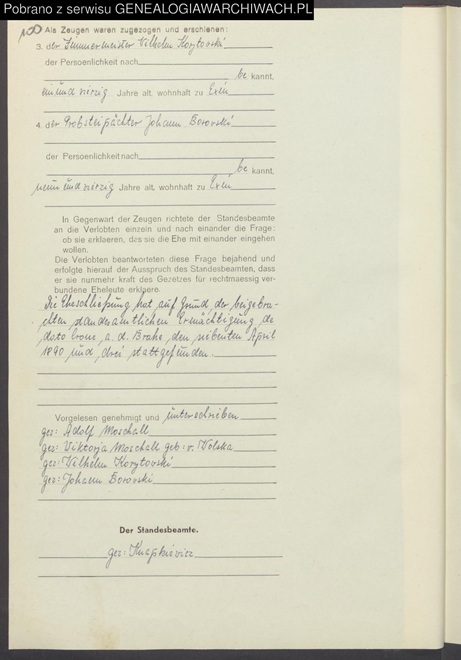 Pobrano z serwisu GENEALOGIAWARCHIWACH.PL
Als Zeugen waren zugezogen und erschienen:
3. der Zimmermeister Wilhelm Korytovski
der Persoenlichkeit nach
be kannt,
einundvierzig Jahre alt, wohnhaft zu Exin
4. der Probsteipächter Johann Borovski
der Persoenlichkeit nach
be kannt,
neunundvierzig Jahre alt, wohnhaft zu Exin
In Gegenwart der Zeugen richtete der Standesbeamte
an die Verlobten einzeln und nach einander die Frage:
ob sie erklaeren, das sie die Ehe mit einander eingehen
wollen.
Die Verlobten beantworteten diese Frage bejahend und
erfolgte hierauf der Ausspruch des Standesbeamten, dass
er sie nunmehr kraft des Gesetzes für rechtmaessig ver-
bundene Eheleute erklaere.
Die Eheschließung hat auf Grund der beigebra-
chten standesamtlichen Ermächtigung de
dato Crone, a. d. Brahe, den siebenten April
1890 und drei stattgefunden.
Vorgelesen genehmigt und unterschrieben
gez: Adolf Moschall
gez: Viktorja Moschall geb: v. Wolska
gez: Wilhelm Korytovski
gez: Johann Borovski
Der Standesbeamte.
gez: Knapkiewicz